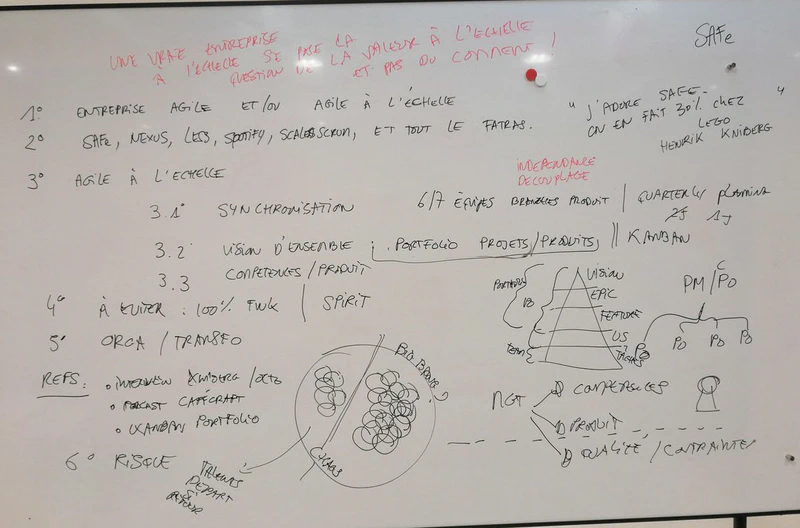 UNE VRAIE ENTREPRISE
À L'ECHELLE SE POSE LA
QUESTION DE LA VALEUR À L'ECHELLE
ET PAS DU COMMENT !
SAFe
1° ENTREPRISE AGILE ET/OU AGILE À L'ÉCHELLE
2° SAFe, NEXUS, LESS, SPOTIFY, SCALED SCRUM, ET TOUT LE FATRAS.
" J'ADORE SAFE -
ON EN FAIT 30% CHEZ "
LEGO
HENRIK KNIBERG
3° AGILE À L'ECHELLE
INDEPENDANCE
DECOUPLAGE
3.1° SYNCHRONISATION
6/7 ÉQUIPES BRANCHES PRODUIT | QUARTERLY PLANNING
2J 1J
3.2 VISION D'ENSEMBLE : PORTFOLIO PROJETS/PRODUITS, || KANBAN
3.3 COMPETENCES/PRODUIT
4° À EVITER : 100% FWK | SPIRIT
5° ORGA / TRANSFO
PORTFOLIO
PO
TEAM
VISION
EPIC
FEATURE
US
TACHES
PM/CPO
PO PO PO PO
REFS :
• INTERVIEW KNIBERG/OCTO
• PODCAST CAFÉCRAFT
• KANBAN PORTFOLIO
BIG BROTHER
CHAOS
6° RISQUE
TALENTS
DEPART
SI
RETOUR
MGT
COMPÉTENCES
PRODUIT
QUALITÉ / CONTRAINTES